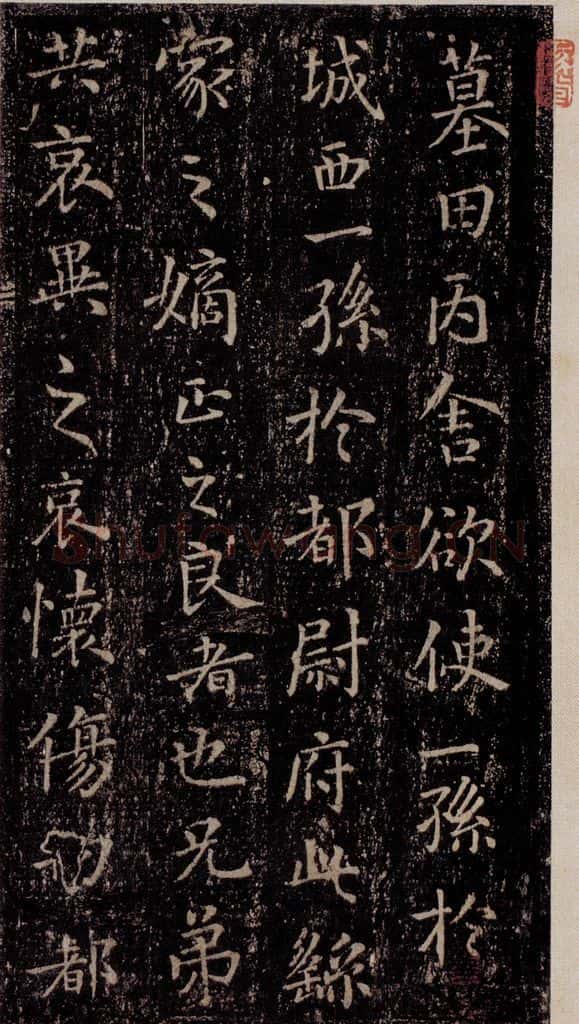 墓田丙舍欲使一孫於
城西一孫於都尉府此繇
家之嫡正之良者也兄弟
共哀異之哀懷傷切都
shufawang.CN